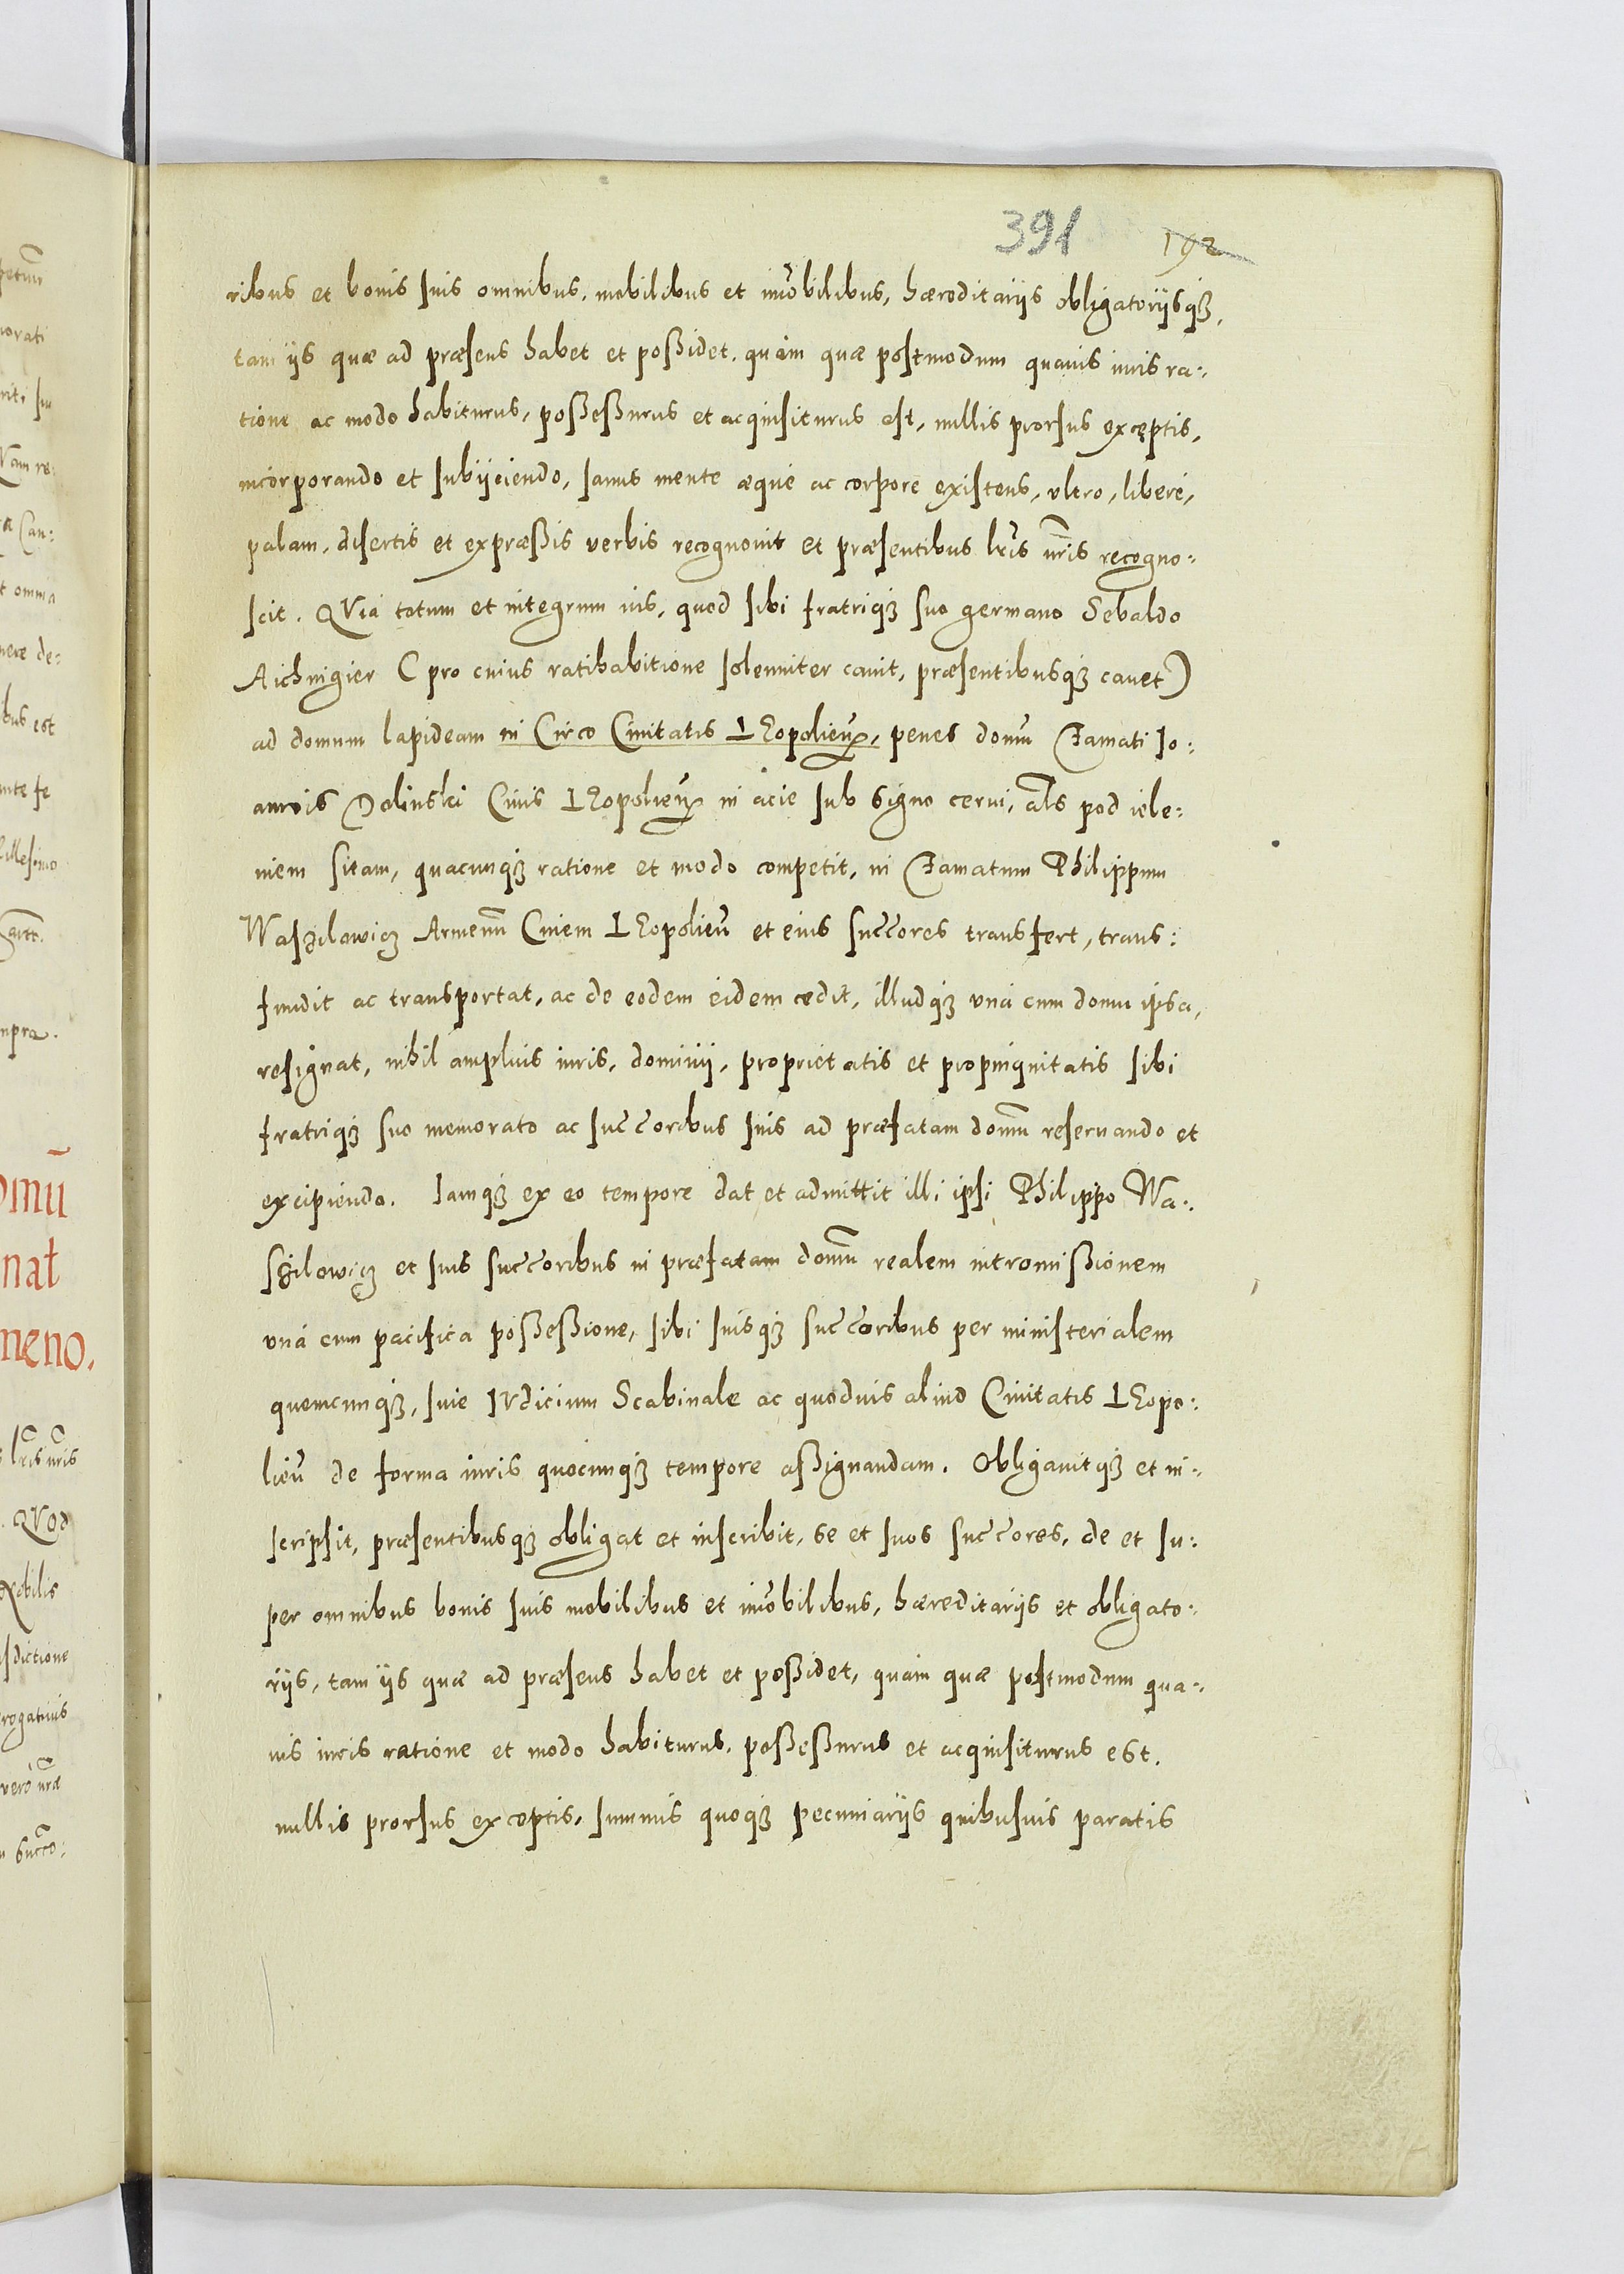 391 192
ribus et bonis suis omnibus, mobilibus et im̃obilibus, hæreditarijs obligatorijsq3,
tam ijs quæ ad præsens habet et poßidet, quàm quæ postmodum quavis iuris ra:
tione ac modo habiturus, poßeßurus et acquisiturus est, nullis prorsus exceptis,
incorporando et subijciendo, sanus mente æquè ac corpore existens, vltro, liberè,
palam, disertis et expræßis verbis recognovit et præsentibus lr̃is nr̃is recogno:
scit. QVia totum et integrum ius, quod sibi fratriq3 suo germano Sebaldo
Aichnigier (pro cuius ratihabitione solenniter cavit, præsentibusq3 cavet)
ad domum lapideam in Circo Civitatis LEopolien̄, penes domū Famati Jo:
annis Dolinski Civis LEopolien̄ in acie sub signo cervi, al̄s pod iele:
niem sitam, quacunq3 ratione et modo competit, in Famatum Philippum
Waszilowicz Armenū Civem LEopolien̄ et eius succ̄ores transfert, trans:
fundit ac transportat, ac de eodem eidem cedit, illudq3 vnà cum domu ipsa,
resignat, nihil amplius iuris, dominij, proprietatis et propinquitatis sibi
fratriq3 suo memorato ac succ̄oribus suis ad præfatam domū reservando et
excipiendo. Iamq3 ex eo tempore dat et admittit illi ipsi Philippo Wa:
szilowicz et suis succ̄oribus in præfatam domū realem intromißionem
vnà cum pacifica poßeßione, sibi suisq3 succ̄oribus per ministerialem
quemcunq3, sive IVdicium Scabinale ac quodvis aliud Civitatis LEopo:
lien̄ de forma iuris quocunq3 tempore aßignandam. Obligavitq3 et in:
scripsit, præsentibusq3 obligat et inscribit, se et suos succ̄ores, de et su:
per omnibus bonis suis mobilibus et im̃obilibus, hæreditarijs et obligato:
rijs, tam ijs quæ ad præsens habet et poßidet, quàm quæ postmodum qua:
vis iuris ratione et modo habiturus, poßeßurus et acquisiturus est,
nullis prorsus exceptis, summis quoq3 pecuniarijs quibusvis paratis